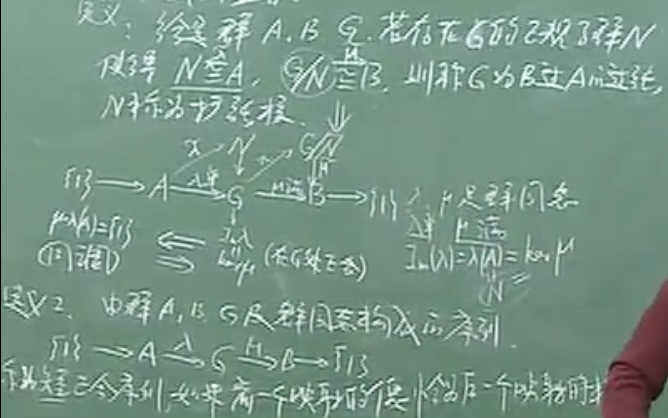 定义: 给定群 A, B, G. 若存在G的正规子群N
使得 N≅A, G/N ≅ B, 则称G为B过A的扩张,
N称为扩张核.
N G/N
{1} → A →λ单 G →μ满 B → {1} λ, μ是群同态
μλ(A)={1} ⇐ Imλ λ单 μ满
(同调) ⇒ kerμ (在G处正合) Im(λ)=λ(A)=kerμ
N
定义2. 由群A, B, G及群同态构成的序列
{1} → A →λ G →μ B → {1}
正合序列, 如果前一个映射的像恰是后一个映射的核